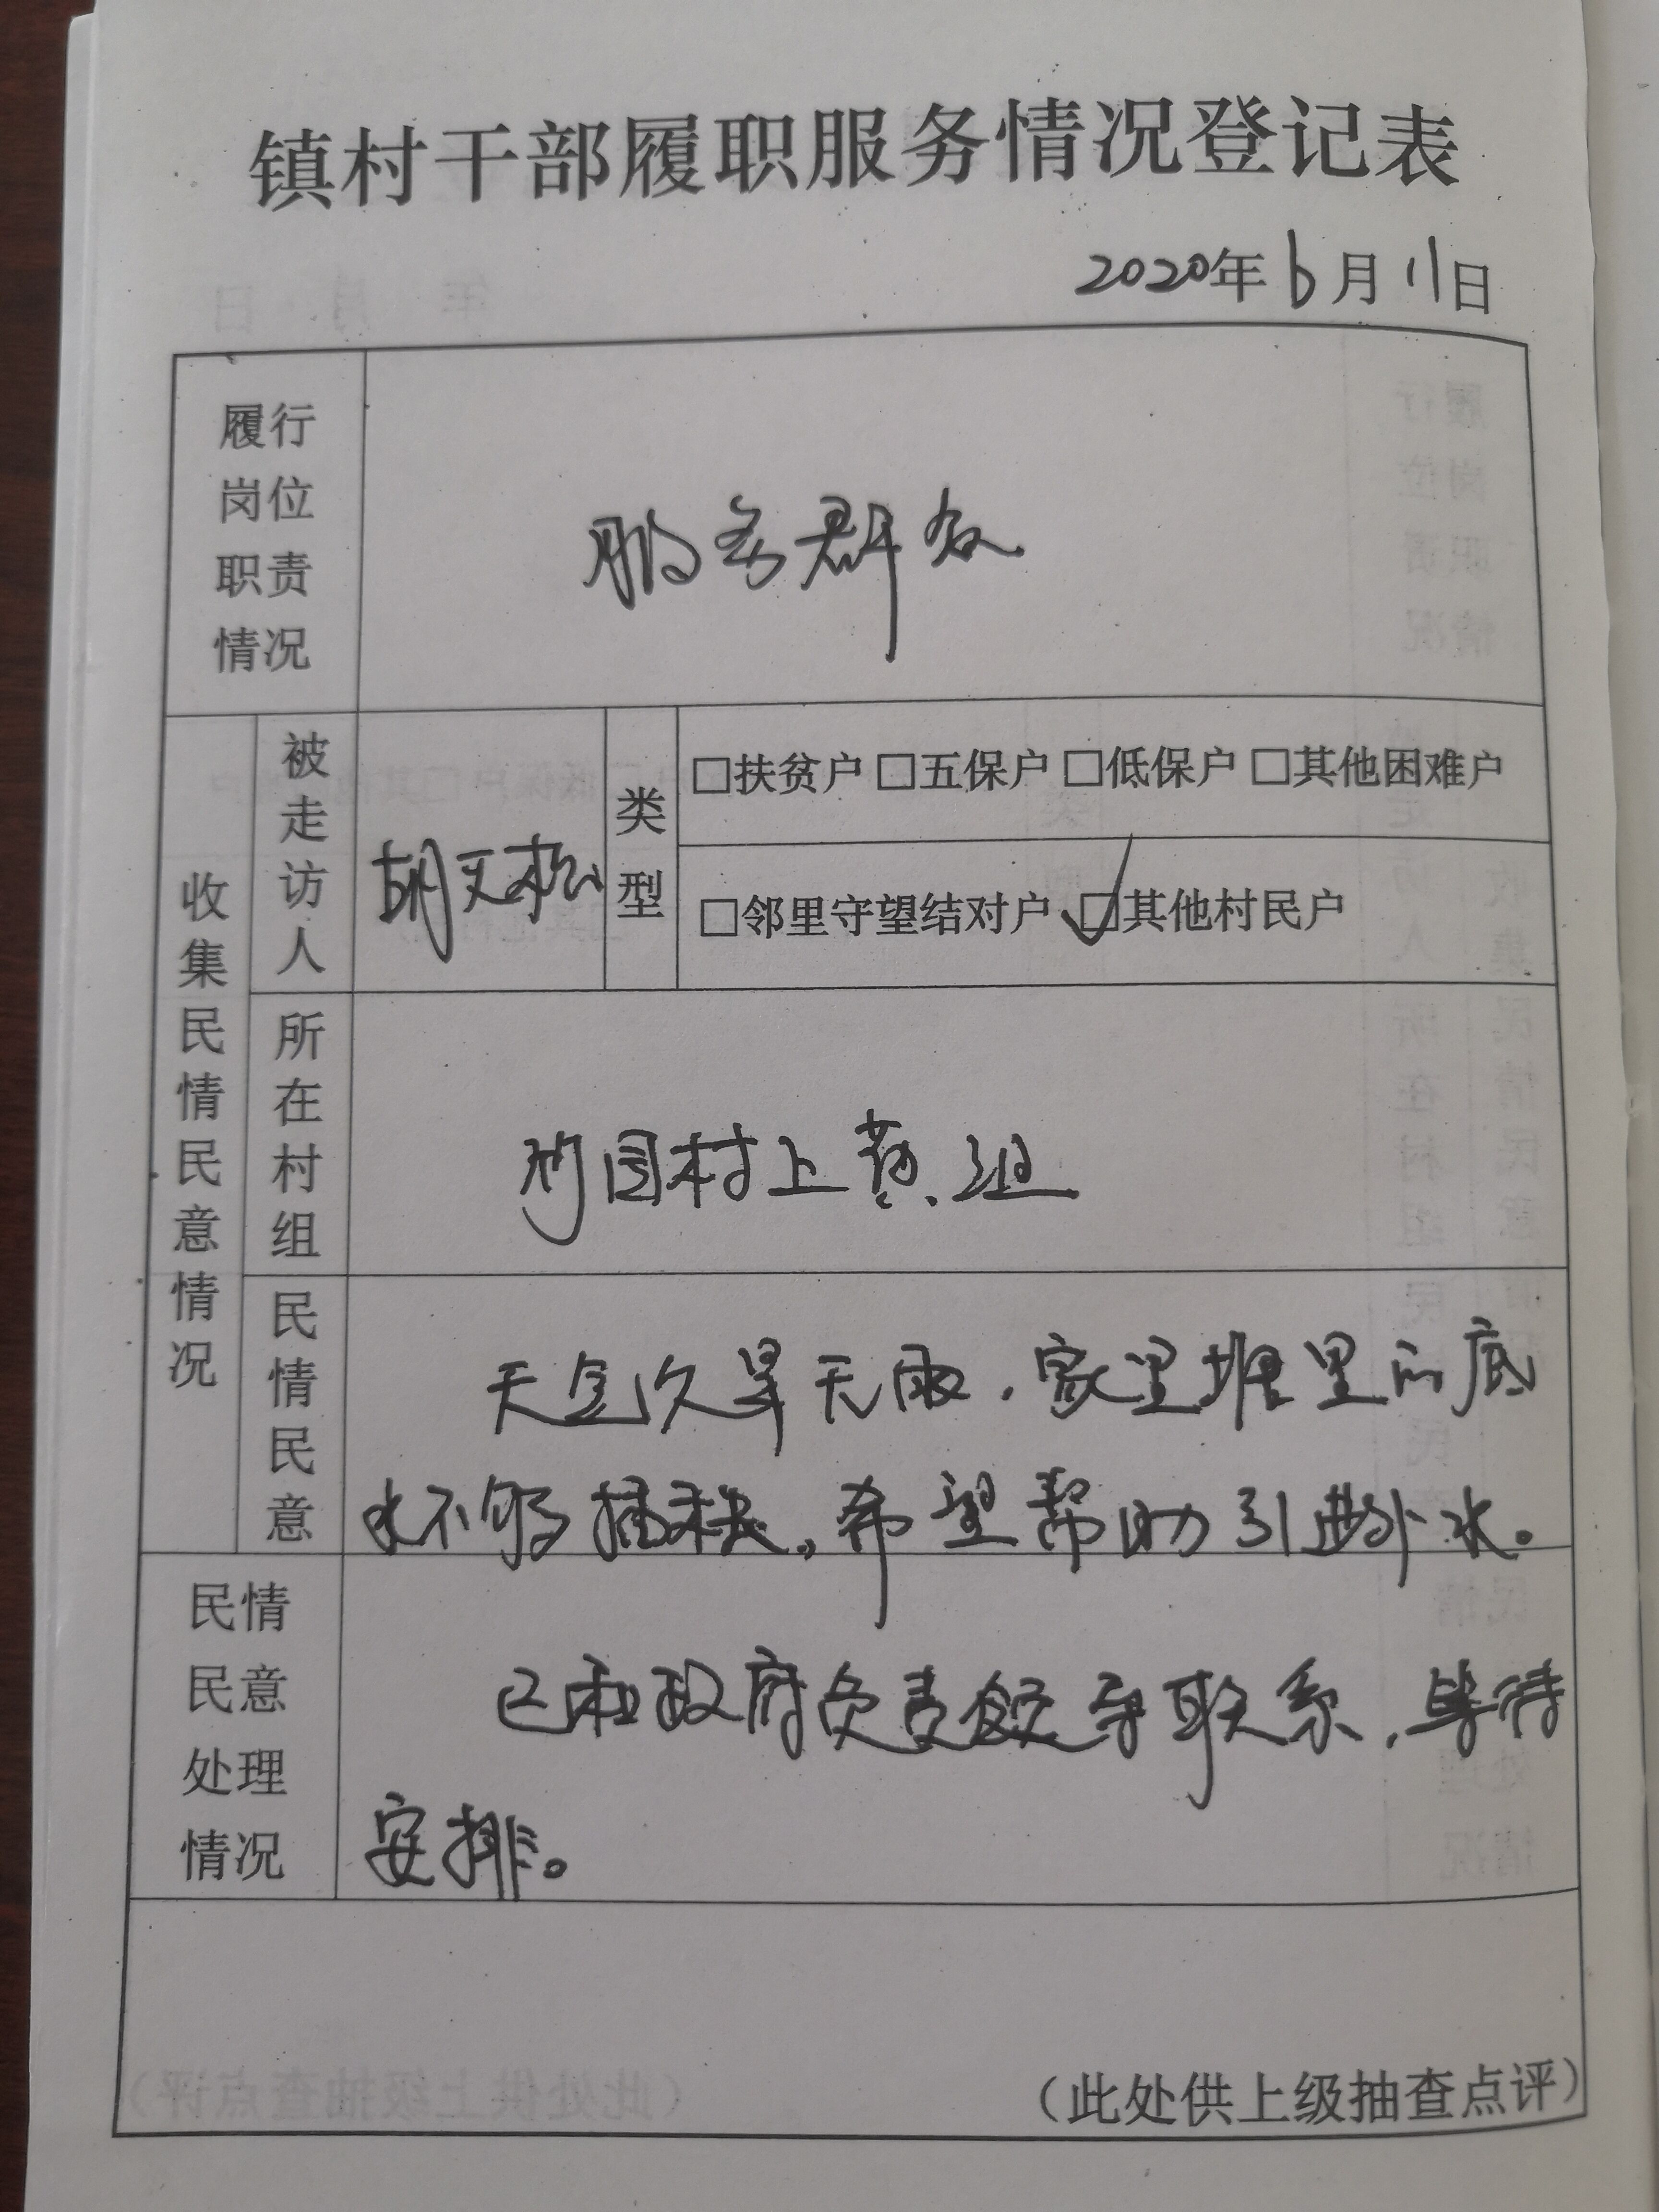 镇村干部履职服务情况登记表
2020年6月11日
履行
岗位
职责
情况
服务群众
收集民情民意情况
被走访人
胡文松
类型
□扶贫户 □五保户 □低保户 □其他困难户
□邻里守望结对户 ☑其他村民户
所在村组
园村上 组
民情民意
天气久旱无雨,家里堰里的底
水不够插秧,希望帮助引进外水。
民情
民意
处理
情况
已和政府负责领导联系,等待
安排。
(此处供上级抽查点评)